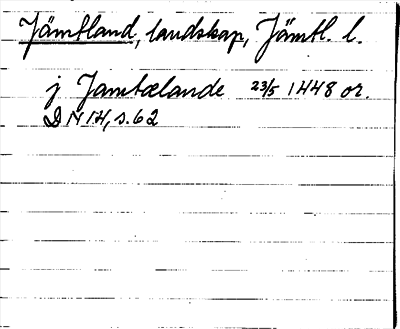 Jämtland, landskap, Jämtl. l.
j Jamtælande 23/5 1448 or.
DN 14, s. 62